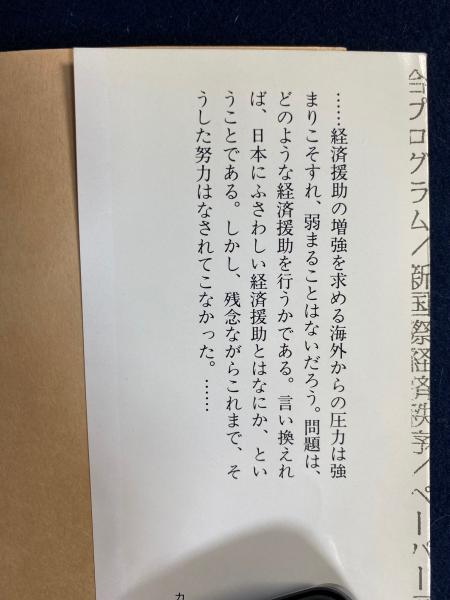 合プログラム／新国際経済秩序／ペーパー
……経済援助の増強を求める海外からの圧力は強
まりこそすれ、弱まることはないだろう。問題は、
どのような経済援助を行うかである。言い換えれ
ば、日本にふさわしい経済援助とはなにか、とい
うことである。しかし、残念ながらこれまで、そ
うした努力はなされてこなかった。……
カ